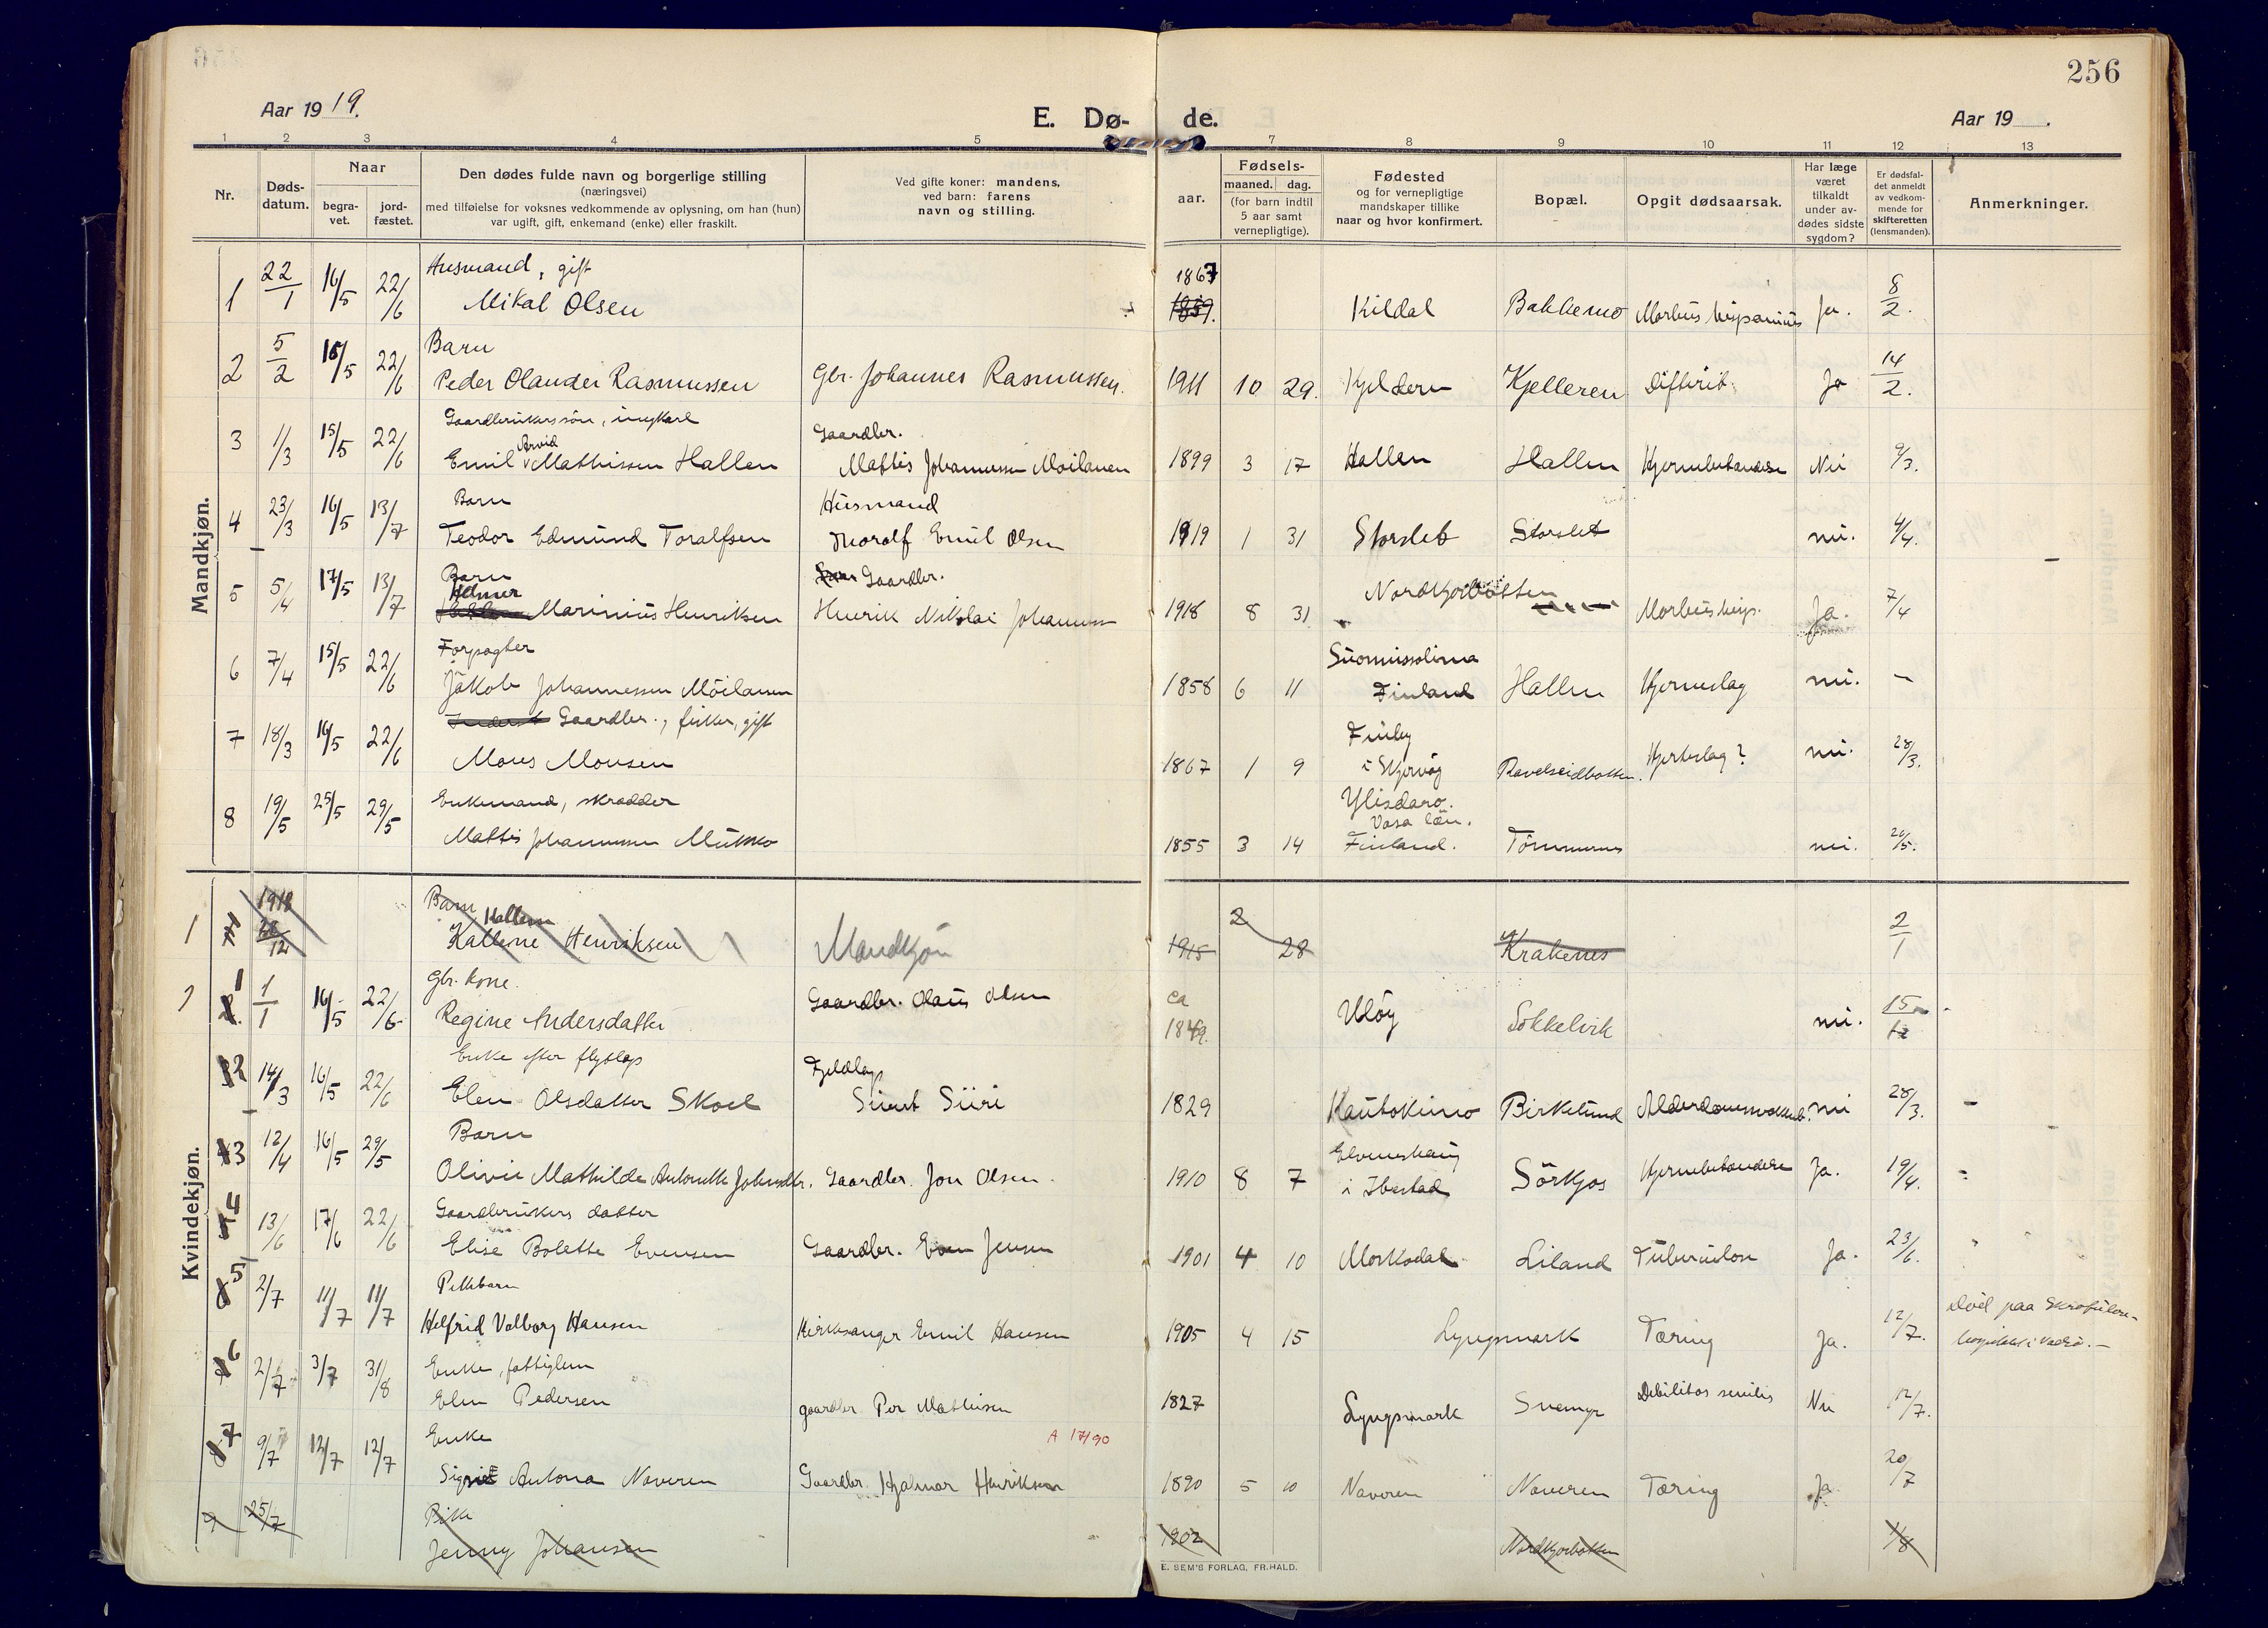 256
Aar 1919.
E. Dø- de.
Aar 19 .
1 2 3 4 5 7 8 9 10 11 12 13
Nr.
Døds-
datum.
Naar
begra-
vet.
jord-
fæstet.
Den dødes fulde navn og borgerlige stilling
(næringsvei)
med tilføielse for voksnes vedkommende av oplysning, om han (hun)
var ugift, gift, enkemand (enke) eller fraskilt.
Ved gifte koner: mandens,
ved barn: farens
navn og stilling.
aar.
Fødsels-
maaned. dag.
(for barn indtil
5 aar samt
vernepligtige).
Fødested
og for vernepligtige
mandskaper tillike
naar og hvor konfirmert.
Bopæl.
Opgit dødsaarsak.
Har læge
været
tilkaldt
under av-
dødes sidste
sygdom?
Er dødsfal-
det anmeldt
av vedkom-
mende for
skifteretten
(lensmanden).
Anmerkninger.
Mandkjøn.
Husmand, gift 1867
1 22/1 16/5 22/6 Mikal Olsen Kildal Bakkemo Morbus hispanius Ja. 8/2.
Barn
2 5/2 15/5 22/6 Peder Olander Rasmussen Gbr. Johannes Rasmussen. 1911 10 29. Kjelderen Kjelleren Difterit Ja 14/2.
Gaardbrukerssøn, ungkarl Gaardbr.
3 1/3 15/5 22/6 Emil Arvid Mathissen Hallen Mattis Johannessen Moilanen 1899 3 17 Hallen Hallen Hjernebetændelse Nei 9/3.
Barn Husmand
4 23/3 16/5 13/7 Teodor Edmund Toralfsen Thoralf Emil Olsen 1919 1 31 Storslet Storslet nei. 4/4.
Barn Gaardbr.
5 5/4 17/5 13/7 Helmer Marinius Henriksen Henrik Nikolai Johannessen 1918 8 31 Nordkjosbotten Morbus hisp. Ja. 7/4
Forpagter Suomussolima
6 7/4 15/5 22/6 Jakob Johannessen Möilanen 1858 6 11 Finland Hallen Hjerneslag nei. —
Gaardbr., fisker, gift Finby
7 18/3 16/5 22/6 Mons Monsen 1867 1 9 i Skjervøy Ravelseidbotten. Hjerteslag? nei. 28/3.
Enkemand, skrædder Ylisdaro.
Vasa län.
8 19/5 25/5 29/5 Mattis Johannessen Mukko 1855 3 14 Finland. Tømmernes nei. 20/5.
Kvindekjøn.
1 1918 Barn 2 2/1
28/12 Kallerne Henriksen Mandkjøn 1915 28 Krakenes
Gbr. kone. ca
1 1/1 16/5 22/6 Regine Andersdatter Gaardbr. Olaus Olsen 1849. Uløy Sokkelvik nei. 15
Enke efter flytlap Fjeldlap
2 14/3 16/5 22/6 Elen Olsdatter Skoel Siiri 1829 Kautokino Birkelund Alderdomssvakhet nei 28/3. —
Barn Elveneshaug
3 12/4 16/5 29/5 Olivie Mathilde Antonette Johnsdtr. Gaardbr. Jon Olsen. 1910 8 7 i Ibestad Sørkjos Hjernebetændelse Ja. 19/4.
Gaardbrukers datter
4 13/6 17/6 22/6 Elise Bolette Evensen Gaardbr. Even Jensen 1901 4 10 Morksdal Liland Tuberkulose Ja. 23/6.
Pikebarn
5 2/7 11/7 11/7 Helfrid Valborg Hansen Kirkesanger Emil Hansen 1905 4 15 Lyngsmark Tæring Ja. 12/7. Død paa Skrofulose-
hospitalet i Vadsø. —
Enke, fattiglem
6 2/7 3/7 31/8 Elen Pedersen gaardbr. Per Mathisen 1827 Lyngsmark Svemyr Debilitas senilis Nei 12/7.
Enke A 17/90
7 9/7 12/7 12/7 Sigrid Antona Naveren Gaardbr. Hjalmar Henriksen 1890 5 10 Naveren Naveren Tæring Ja 20/7
Pike
9 25/7 Jenny Johansen 1902 Nordkjosbotten 1/8
E. SEM'S FORLAG, FR.HALD.